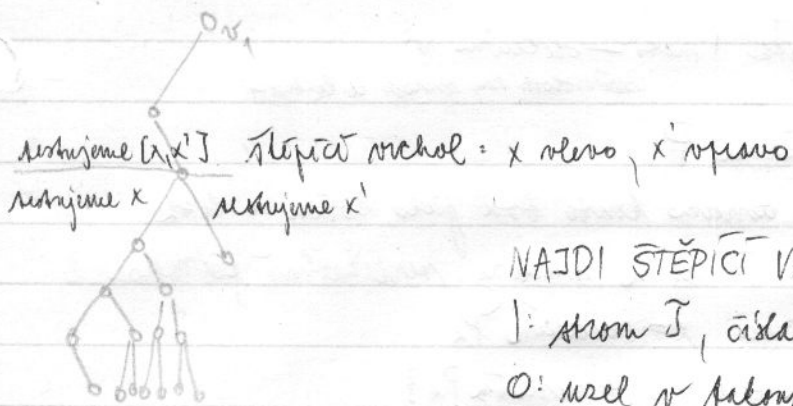 v₁
testujeme [x,x'] štěpící vrchol = x vlevo, x' vpravo
testujeme x testujeme x'
NAJDI ŠTĚPÍCÍ V
I: strom T, čísla
O: uzel v takov